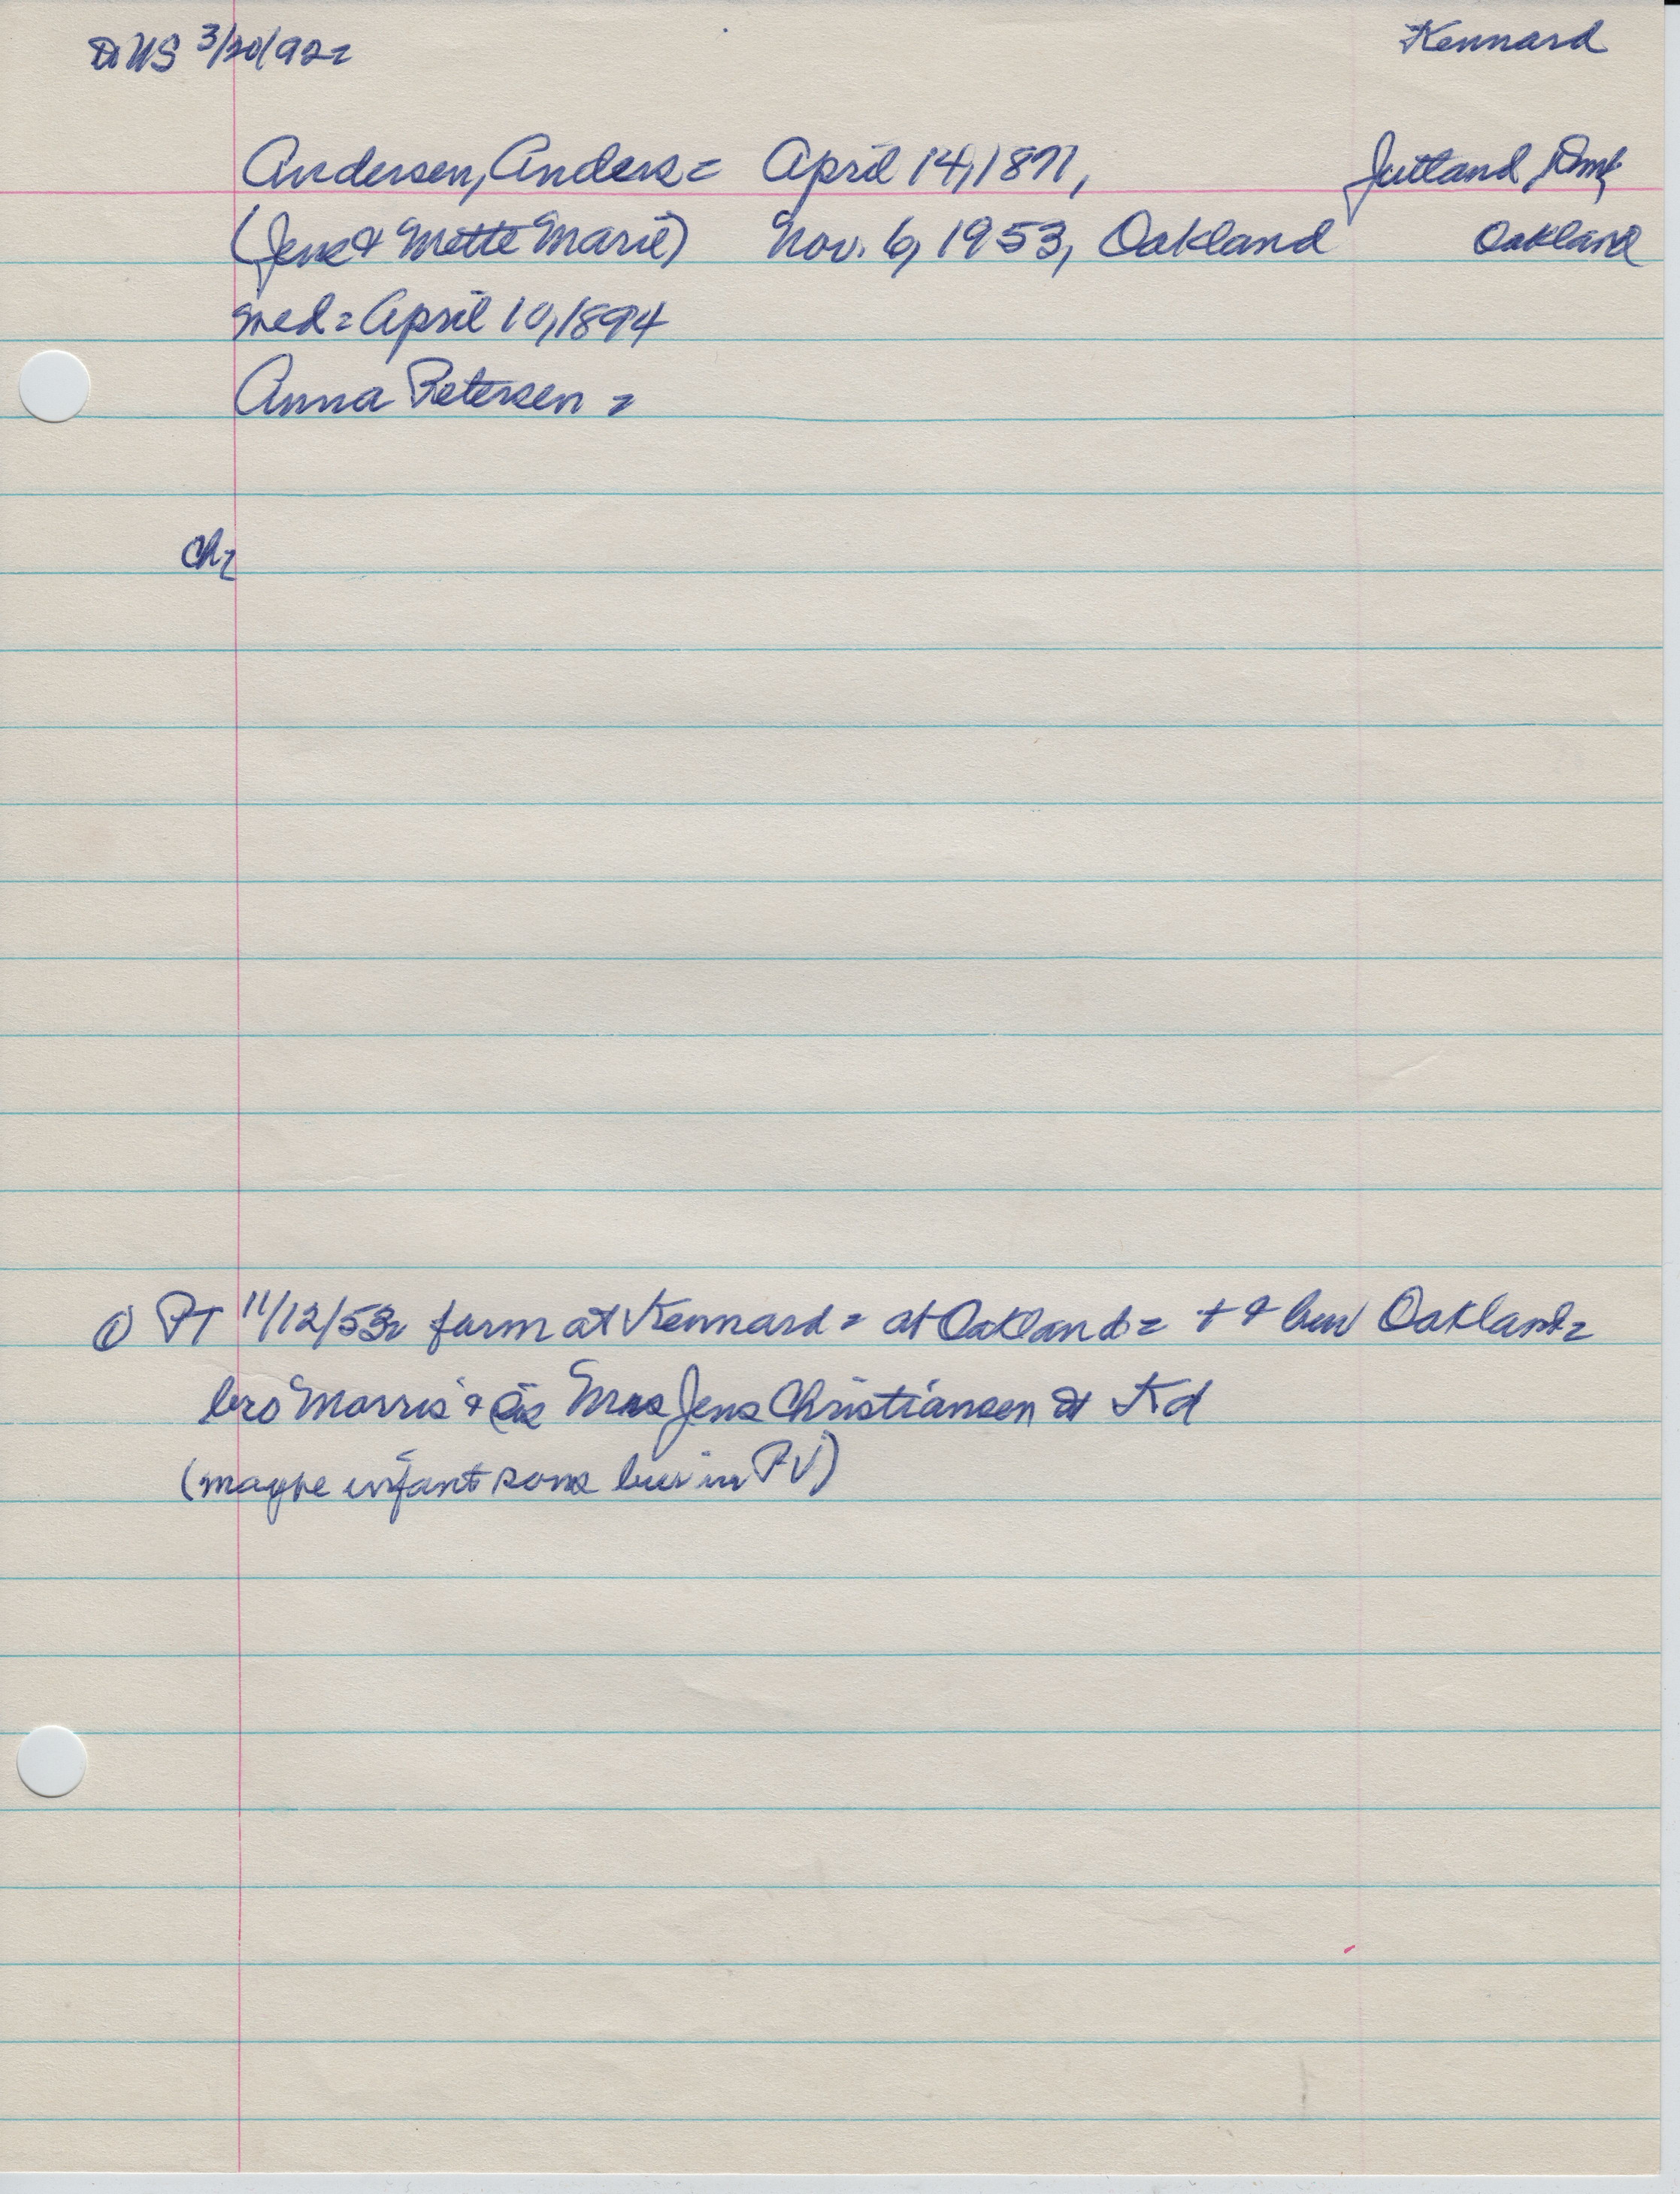 to US 3/20/92= Kennard
Andersen, Anders= April 14, 1871, Jutland, Dmk
(Jens & Mette Marie) Nov. 6, 1953, Oakland Oakland
med= April 10, 1894
Anna Petersen =
Ch=
① PT 11/12/53= farm at Kennard = at Oakland = + & bur Oakland=
bro Morris & sis Mrs Jens Christiansen at Kd
(maybe infant sons bur in PV)